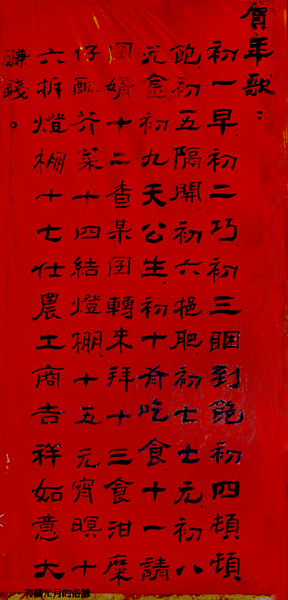 賀年歌：
初一早初二巧初三睏到飽初四頓頓
飽初五隔開初六挹肥初七七元初八
完全初九天公生初十有吃食十一請
囝婿十二查某囝轉來拜十三食泔糜
仔配芥菜十四結燈棚十五元宵暝十
六拆燈棚十七仕農工商吉祥如意大
賺錢。
有關元月的俗諺